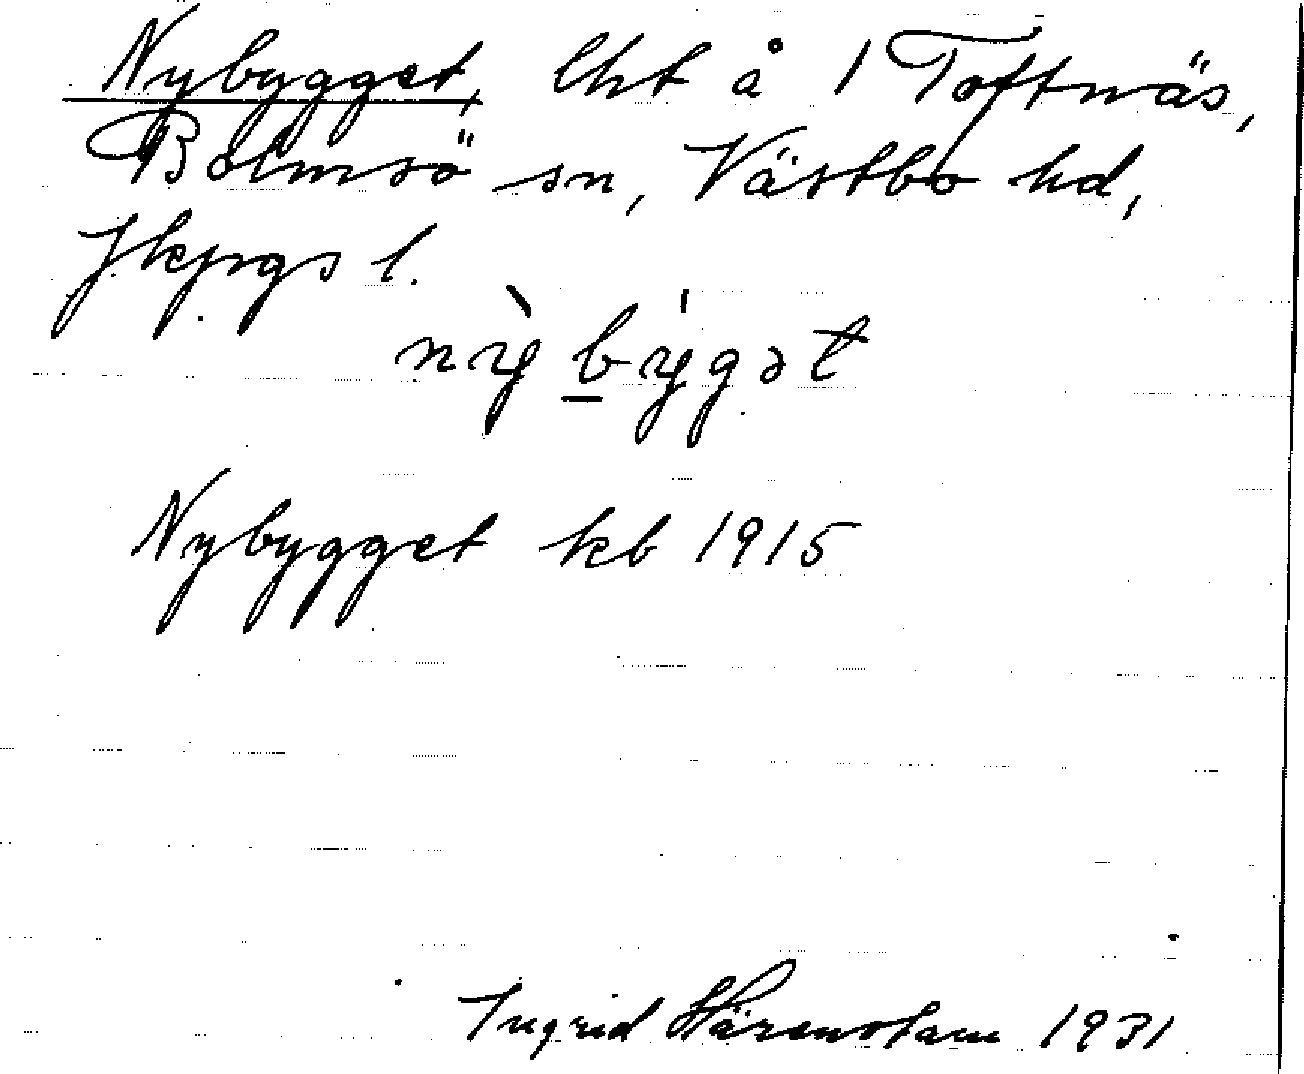 Nybygget, lht å 1 Toftnäs,
Bolmsö sn, Västbo hd,
Jkpgs l.
nỳ by̍gət
Nybygget kb 1915
Ingrid Härenstam 1931